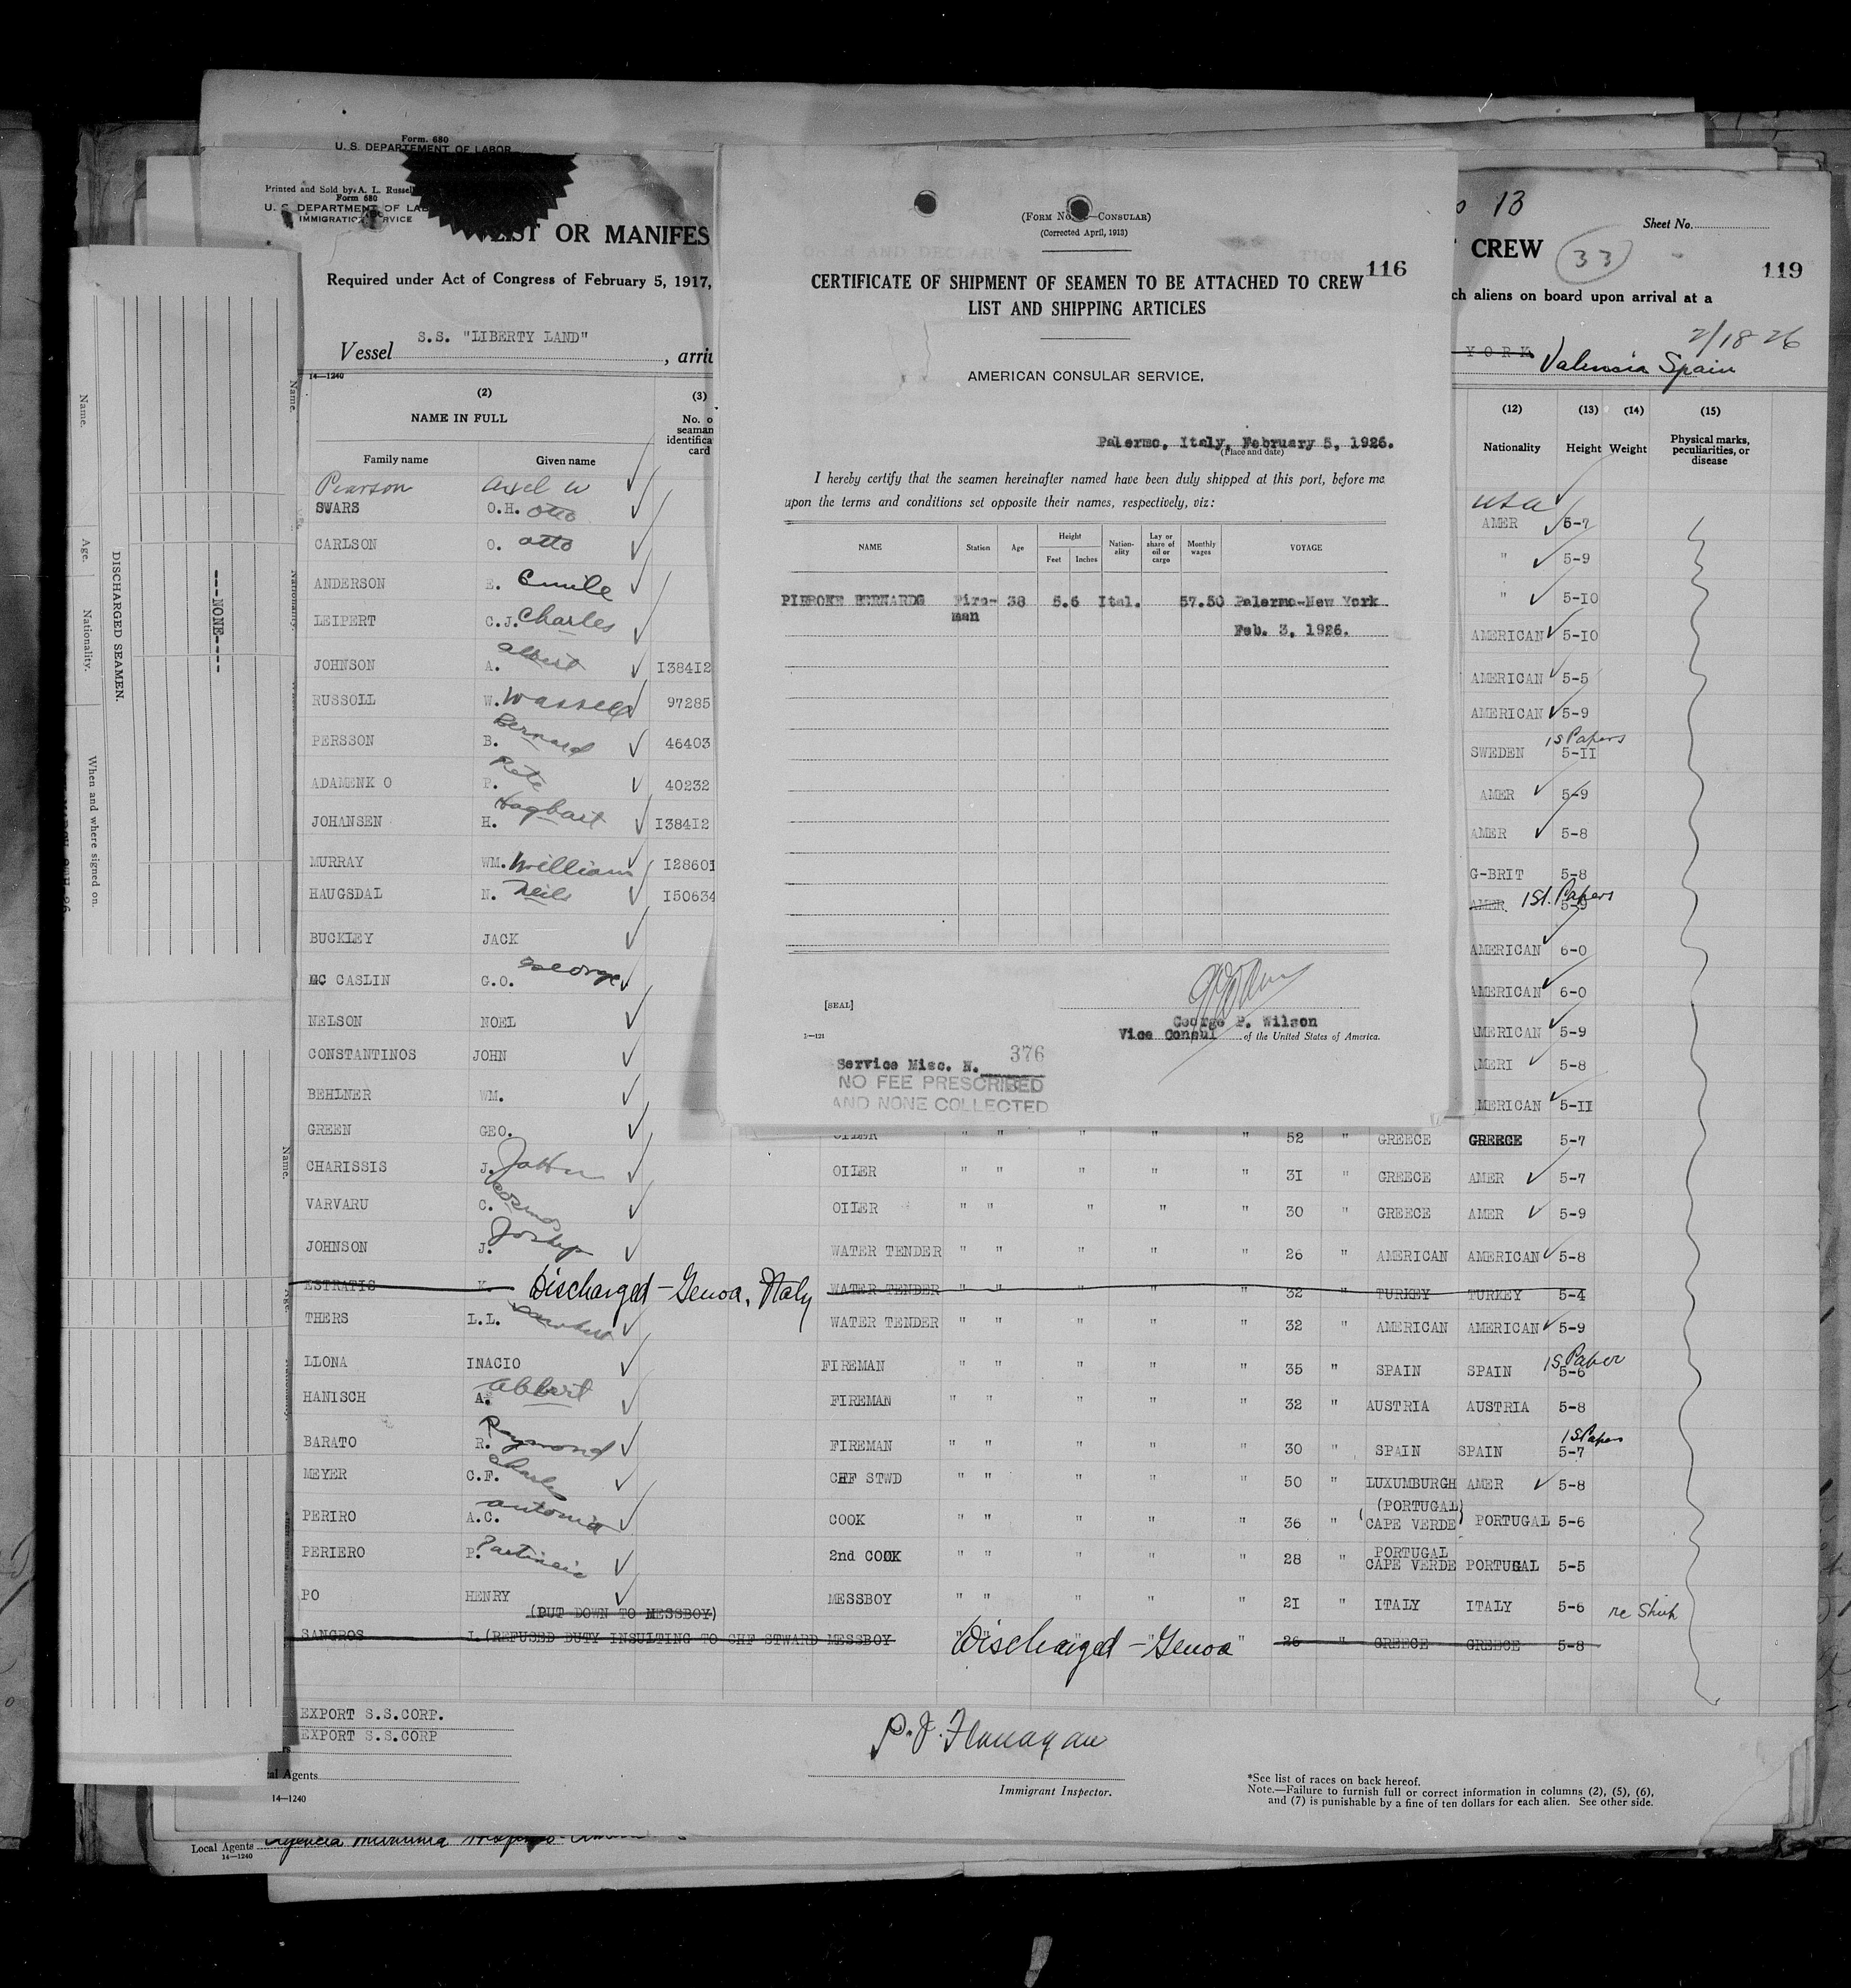 Form. 680
U. S. DEPARTEMENT OF LABOR
Printed and Sold by A. L. Russel
Form 680
U. S. DEPARTMENT OF LAB
IMMIGRATION SERVICE
LIST OR MANIFES
Required under Act of Congress of February 5, 1917,
S.S. "LIBERTY LAND"
Vessel , arri
14—1240
(2) (3)
NAME IN FULL
No. o
seaman
identifica
card
Family name Given name
Pearson Axel W
SWARS O.H. Otto
CARLSON O. Otto
ANDERSON E. Emile
LEIPERT C.J. Charles
JOHNSON A. Albert I38412
RUSSOLL W. Wassell 97285
PERSSON B. Bernard 46403
ADAMENK O P. Pete 40232
JOHANSEN H. Hagbart I38412
MURRAY WM. William I28601
HAUGSDAL N. Neils I50634
BUCKLEY JACK
MC CASLIN G.O. George
NELSON NOEL
CONSTANTINOS JOHN
BEHLNER WM.
GREEN GEO.
CHARISSIS J. John
VARVARU C. Cosmos
JOHNSON J. Joship
ESTRATIS K. Discharged - Genoa, Italy
THERS L.L.
LLONA INACIO
HANISCH A. Albert
BARATO R. Raymond
MEYER C.F. Charles
PERIRO A.C. Antonia
PERIERO P.
PO HENRY
(PUT DOWN TO MESSBOY)
SANGROS I. (REFUSED DUTY INSULTING TO CHF STWARD MESSBOY Discharged - Genoa 26 " GREECE GREECE 5-8
EXPORT S.S.CORP.
EXPORT S.S.CORP
al Agents
14—1240
P. J. Flanagan
Immigrant Inspector.
*See list of races on back hereof.
Note.—Failure to furnish full or correct information in columns (2), (5), (6),
and (7) is punishable by a fine of ten dollars for each alien. See other side.
Local Agents
14—1240
(FORM NO. —CONSULAR)
(Corrected April, 1913)
116
CERTIFICATE OF SHIPMENT OF SEAMEN TO BE ATTACHED TO CREW
LIST AND SHIPPING ARTICLES
AMERICAN CONSULAR SERVICE,
Palermo, Italy, February 5, 1926.
(Place and date)
I hereby certify that the seamen hereinafter named have been duly shipped at this port, before me
upon the terms and conditions set opposite their names, respectively, viz:
NAME Station Age Height Feet Inches Nation-ality Lay or share of oil or cargo Monthly wages VOYAGE
PIEROKE BERNARDG Fire- 38 5.6 Ital. 57.50 Palermo-New York
man Feb. 3, 1926.
[SEAL]
George P. Wilson
Vice Consul of the United States of America.
1—121
Service Misc. N. 376
NO FEE PRESCRIBED
AND NONE COLLECTED
13
Sheet No.
CREW 33
119
ch aliens on board upon arrival at a
2/18 26
YORK Valencia Spain
(12) (13) (14) (15)
Nationality Height Weight Physical marks, peculiarities, or disease
USA
AMER 5-7
" 5-9
" 5-10
AMERICAN 5-10
AMERICAN 5-5
AMERICAN 5-9
1s Papers
SWEDEN 5-II
AMER 5-9
AMER 5-8
G-BRIT 5-8
AMER 1st. Papers 5-9
AMERICAN 6-0
AMERICAN 6-0
AMERICAN 5-9
AMERI 5-8
MERICAN 5-II
OILER " " " " " 52 " GREECE GREECE 5-7
OILER " " " " " 31 " GREECE AMER 5-7
OILER " " " " " 30 " GREECE AMER 5-9
WATER TENDER " " " " " 26 " AMERICAN AMERICAN 5-8
WATER TENDER " " " " " 32 " TURKEY TURKEY 5-4
WATER TENDER " " " " " 32 " AMERICAN AMERICAN 5-9
FIREMAN " " " " " 35 " SPAIN SPAIN 1s Paper 5-6
FIREMAN " " " " " 32 " AUSTRIA AUSTRIA 5-8
FIREMAN " " " " " 30 " SPAIN SPAIN 1s Paper 5-7
CHF STWD " " " " " 50 " LUXUMBURGH AMER 5-8
COOK " " " " " 36 " (PORTUGAL) CAPE VERDE PORTUGAL 5-6
2nd COOK " " " " " 28 " PORTUGAL CAPE VERDE PORTUGAL 5-5
MESSBOY " " " " " 21 " ITALY ITALY 5-6
Name.
Age.
Nationality.
When and where signed on.
DISCHARGED SEAMEN.
---NONE----